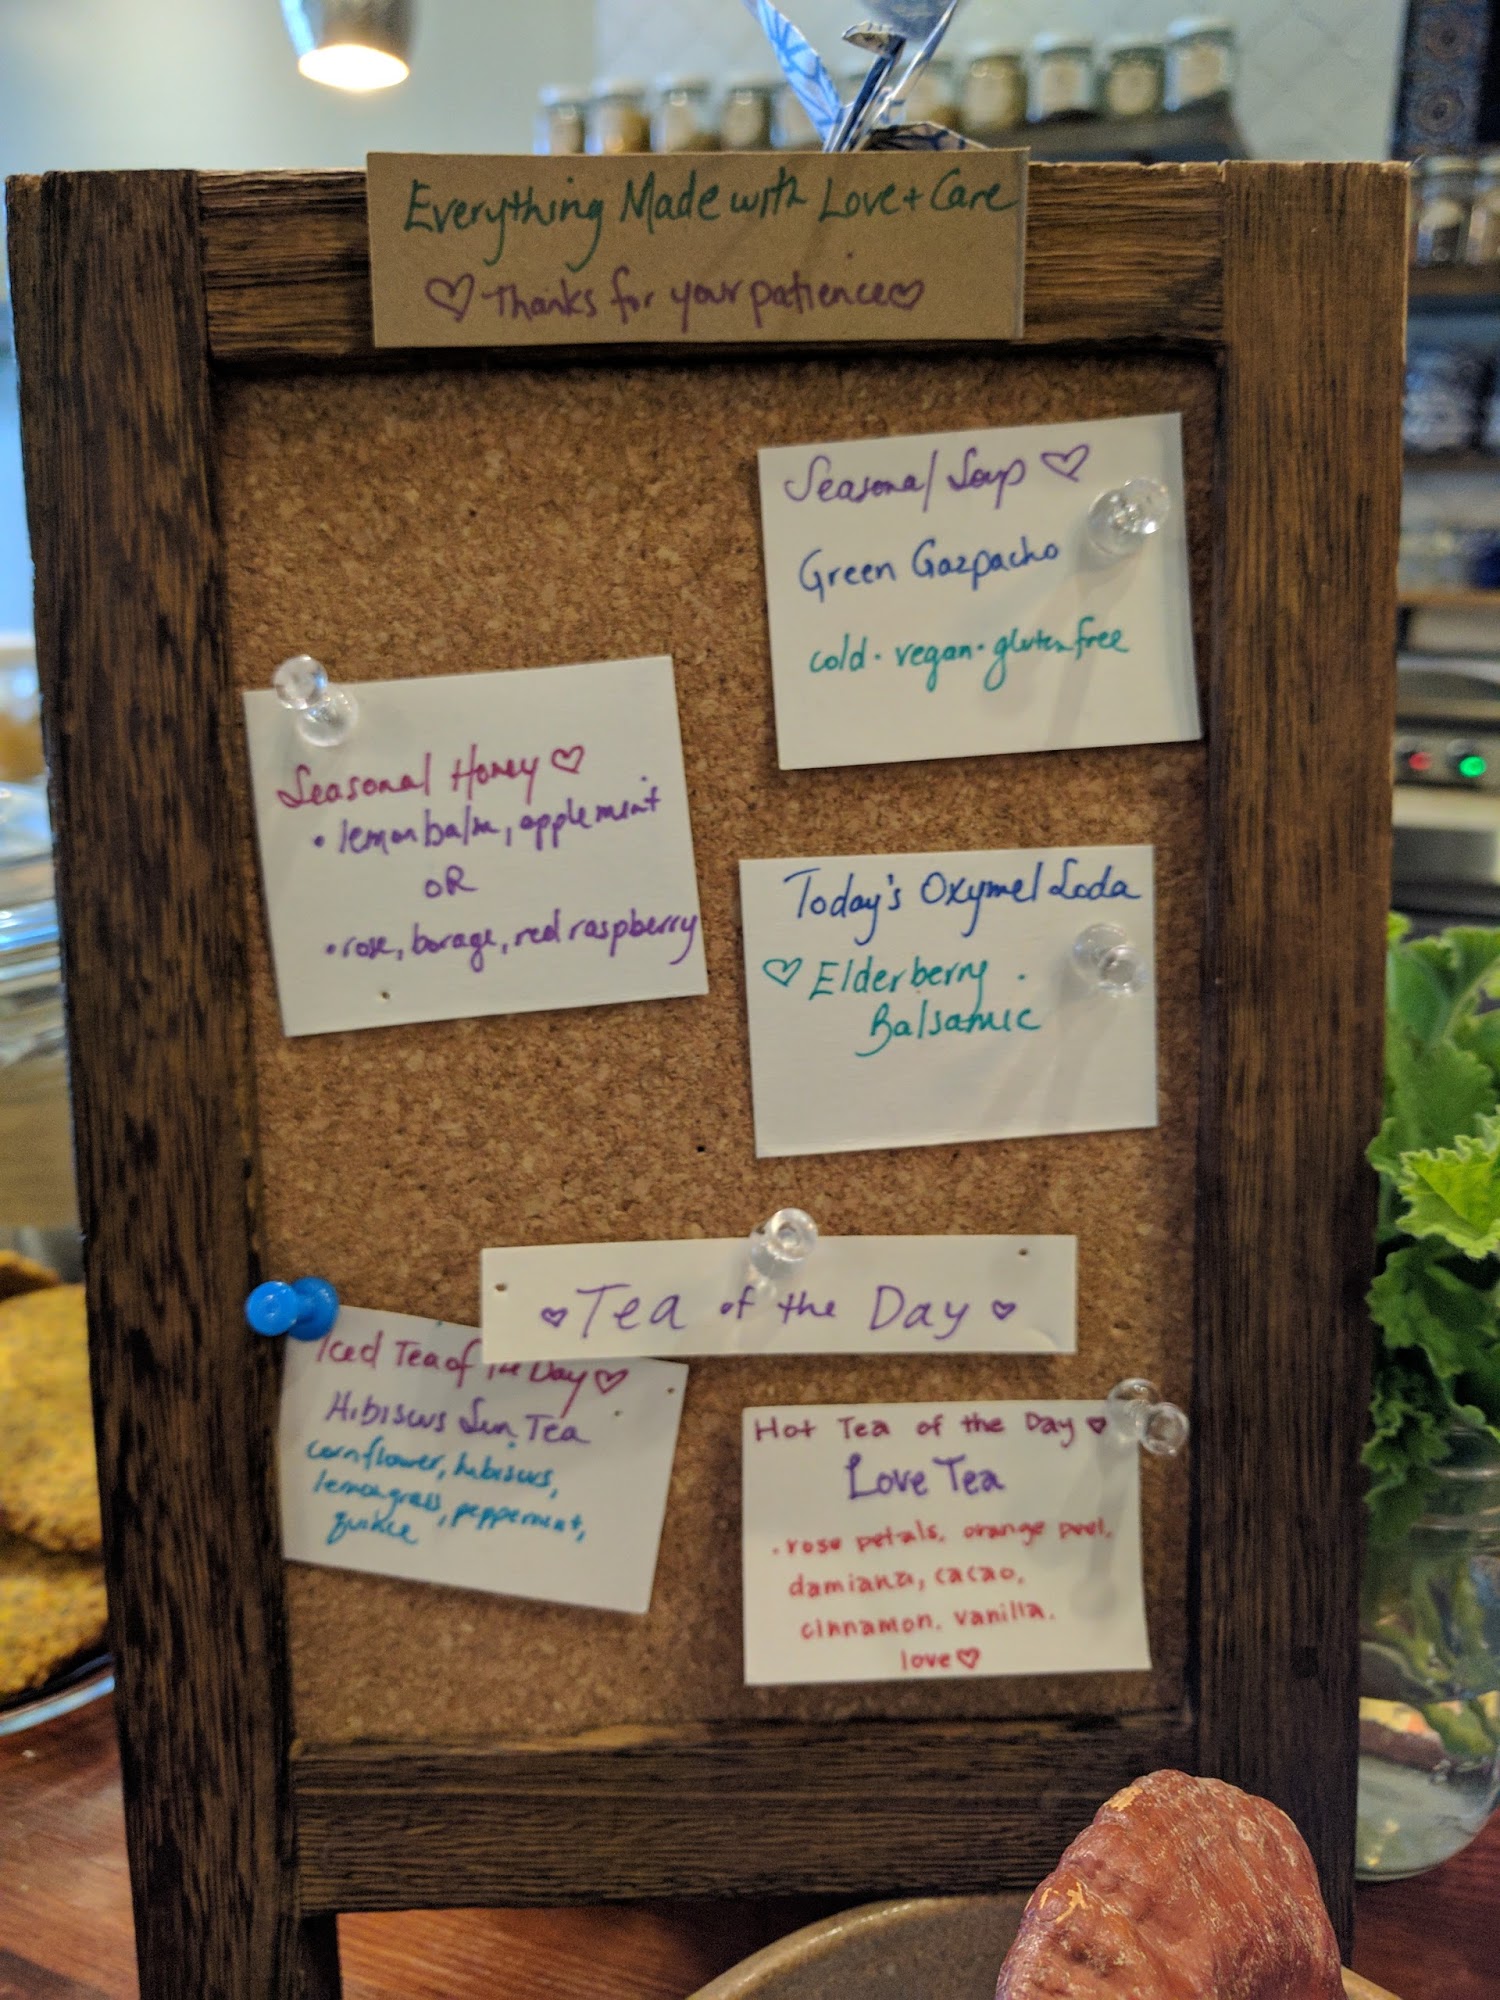 Everything Made with Love + Care
♡ Thanks for your patience ♡
Seasonal Soup ♡
Green Gazpacho
cold · vegan · gluten free
Seasonal Honey ♡
• lemon balm, apple mint
OR
• rose, borage, red raspberry
Today's Oxymel Soda
♡ Elderberry
Balsamic
♡ Tea of the Day ♡
Iced Tea of the Day ♡
Hibiscus Sun Tea
cornflower, hibiscus,
lemongrass, peppermint,
quince
Hot Tea of the Day ♥
Love Tea
• rose petals, orange peel,
damiana, cacao,
cinnamon, vanilla,
love ♡